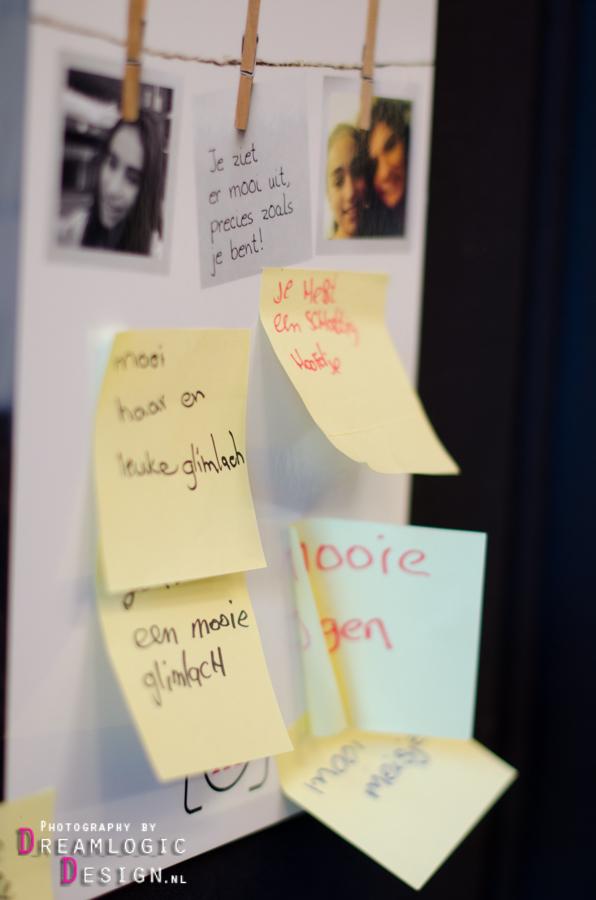 Je ziet
er mooi uit,
precies zoals
je bent!
je Hebt
een SCHattig
Hoofdje
mooi
haar en
leuke glimlach
een mooie
glimlacH
mooie
gen
mooi
meisje
PHOTOGRAPHY BY
DREAMLOGIC
DESIGN.NL